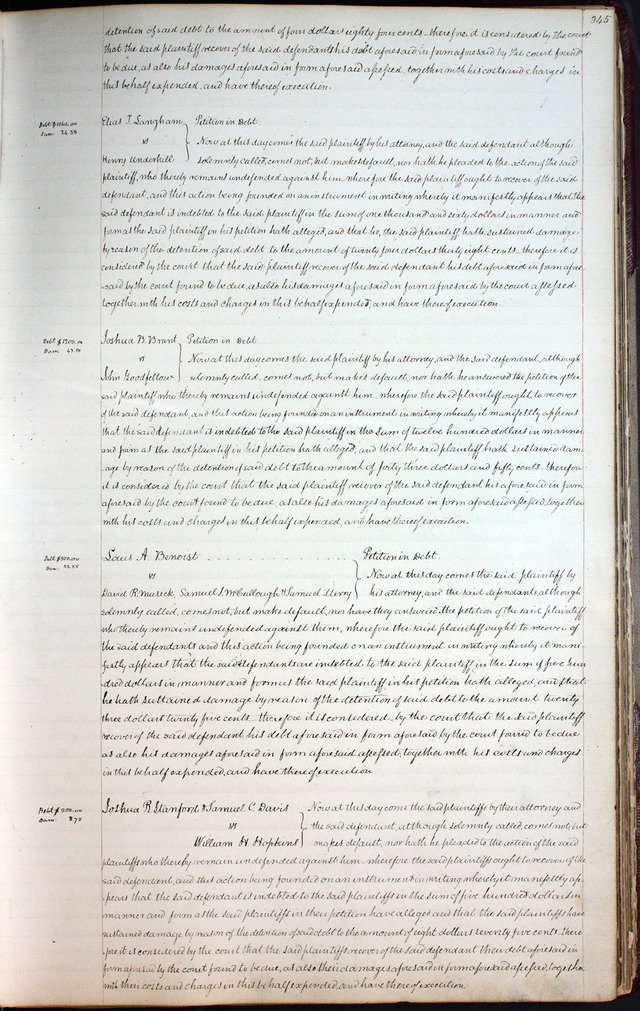 345
detention of said debt to the amount of four dollars eighty four cents therefore it is considered by the court
that the said plaintiff recover of the said defendants his debt aforesaid in form aforesaid by the court found
to be due, as also his damages aforesaid in form aforesaid assessed, together with his costs and charges in
this behalf expended, and have thereof execution.
Debt $1060.00 Elias T. Langham } Petition in Debt.
Dam: 24.38 vs Now at this day comes the said plaintiff by his attorney, and the said defendant although
Henry Underhill solemnly called, comes not, but makes default, nor hath he pleaded to the action of the said
plaintiff, who thereby remains undefended against him. wherefore the said plaintiff ought to recover of the said
defendant, and this action being founded on an instrument in writing whereby it manifestly appears that the
said defendant is indebted to the said plaintiff in the sum of one thousand and sixty dollars in manner and
form as the said plaintiff in his petition hath alleged, and that he, the said plaintiff hath sustained damage
by reason of the detention of said debt to the amount of twenty four dollars thirty eight cents therefore it is
considered by the court that the said plaintiff recover of the said defendant his debt aforesaid in form afore-
said by the court found to be due, as also his damages aforesaid in form aforesaid by the court assessed
together with his costs and charges in this behalf expended, and have thereof execution.
Debt $1200.00 Joshua B. Brant } Petition in Debt
Dam: 43.50 vs Now at this day comes the said plaintiff by his attorney, and the said defendant, although
John Goodfellow solemnly called, comes not, but makes default, nor hath he answered the petition of the
said plaintiff who thereby remains undefended against him. wherefore the said plaintiff ought to recover
of the said defendant, and this action being founded on an instrument in writing whereby it manifestly appears
that the said defendant is indebted to the said plaintiff in the sum of twelve hundred dollars in manner
and form as the said plaintiff in his petition hath alleged, and that the said plaintiff hath sustained dam-
age by reason of the detention of said debt to the amount of forty three dollars and fifty cents therefore
it is considered by the court that the said plaintiff recover of the said defendant his aforesaid in form
aforesaid by the court found to be due, as also his damages aforesaid in form aforesaid assessed, together
with his costs and charges in this behalf expended, and have thereof execution.
Debt $500.00 Louis A. Benoist } Petition in Debt.
Dam: 23.25 vs Now at this day comes the said plaintiff by
David R. Musick, Samuel S. McCullough & Samuel his attorney, and the said defendants although
solemnly called, comes not, but make default, nor have they answered the petition of the said plaintiff
who thereby remains undefended against them, wherefore the said plaintiff ought to recover of
the said defendants and this action being founded on an instrument in writing whereby it mani-
festly appears that the said defendants are indebted to the said plaintiff in the sum of five hun
dred dollars in manner and form as the said plaintiff in his petition hath alleged, and that
he hath sustained damage by reason of the detention of said debt to the amount twenty
three dollars twenty five cents. therefore it is considered by the court that the said plaintiff
recover of the said defendant his debt aforesaid in form aforesaid by the court found to be due
as also his damages aforesaid in form aforesaid assessed, together with his costs and charges
in this behalf expended, and have thereof execution
Debt $500.00 Joshua R. Stanford & Samuel C. Davis } Now at this day come the said plaintiffs by their attorney and
Dam: 8.75 vs the said defendant, although solemnly called, comes not, but
William H. Hopkins makes default, nor hath he pleaded to the action of the said
plaintiffs who thereby remain undefended against him. wherefore the said plaintiffs ought to recover of the
said defendant, and this action being founded on an instrument in writing whereby it manifestly ap-
pears that the said defendant is indebted to the said plaintiffs in the sum of five hundred dollars in
manner and form as the said plaintiffs in their petition have alleged and that the said plaintiffs have
sustained damage by reason of the detention of said debt to the amount of eight dollars seventy five cents. there
fore it is considered by the court that the said plaintiffs recover of the said defendant their debt aforesaid in
form aforesaid by the court found to be due, as also their damages aforesaid in form aforesaid assessed, together
with their costs and charges in this behalf expended, and have thereof execution.